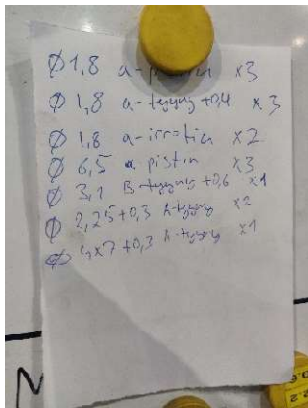 Ø 1,8 a-pistin x3
Ø 1,8 a-tyyny +0,4 x3
Ø 1,8 a-irrotin x2
Ø 6,5 a pistin x3
Ø 3,1 B-tyyny +0,6 x1
Ø 2,25+0,3 A-tyyny x2
4x7+0,3 A-tyyny x1
N